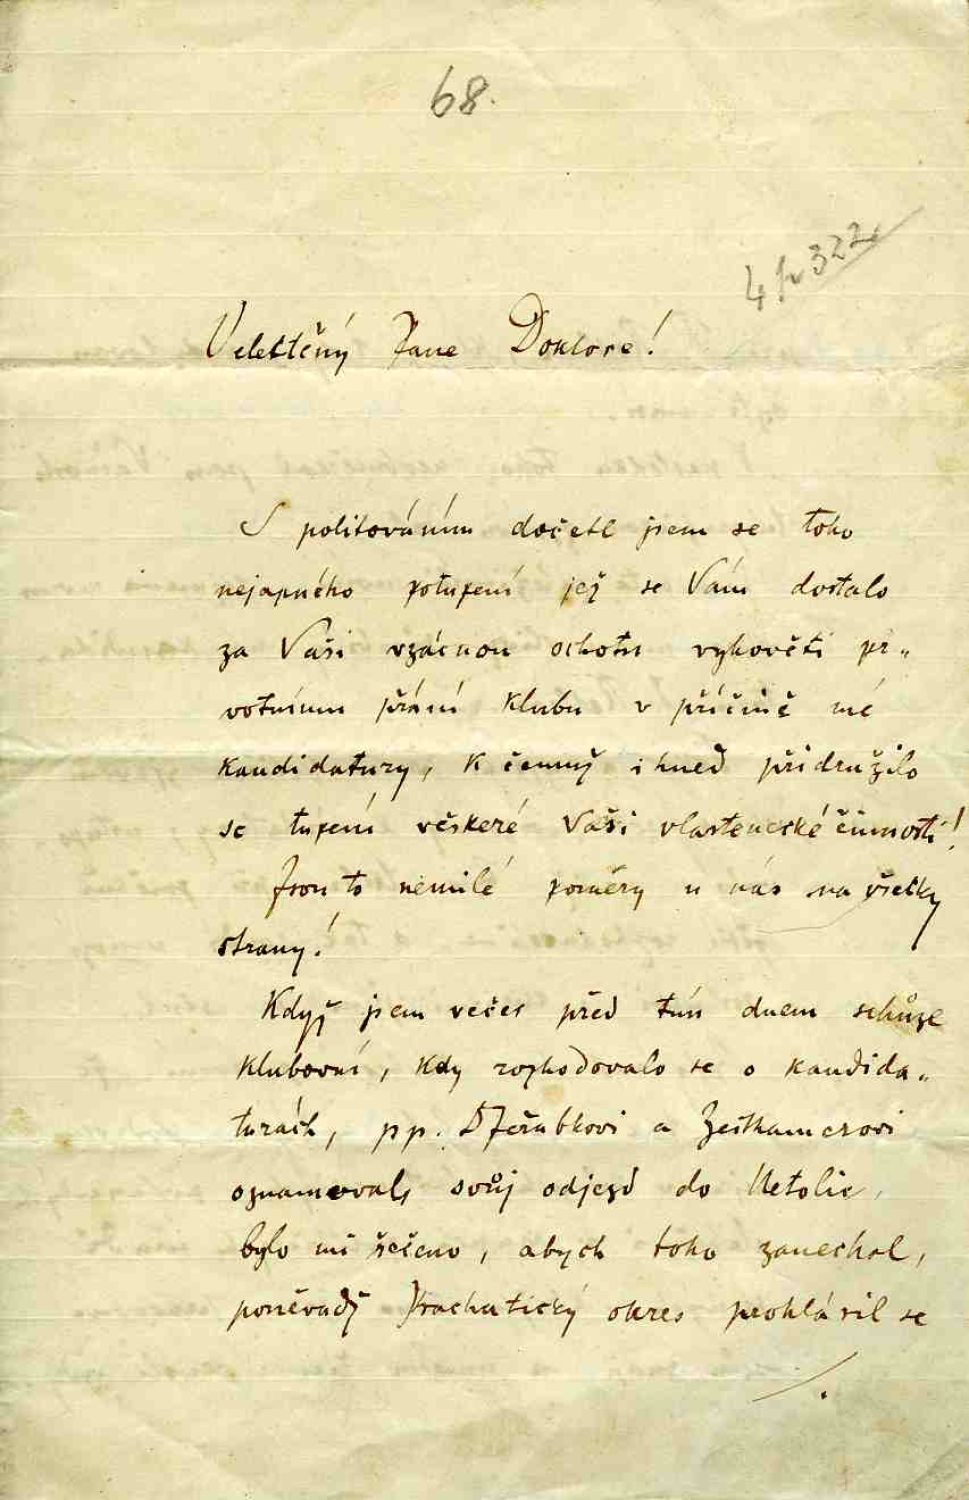 68.
4 h 322
Velectěný Pane Doktore!
S politováním dočetl jsem se toho
nejapného potupení jež se Vám dostalo
za Vaši vzácnou ochotu vyhověti pr„
votnímu přání klubu v příčině mé
kandidatury, k čemuž ihned přidružilo
se tupení věškeré Vaší vlastenecké činnosti!
Jsou to nemilé poměry u nás na všecky
strany!
Když jsem večer před tím dnem schůze
klubovní, kdy rozhodovalo se o kandida„
turách, pp. Dřeřábkovi a Zeithamerovi
oznamoval, svůj odjezd do Netolic,
bylo mi řečeno, abych toho zanechal,
poněvadž Prachatický okres prohlásil se
./.